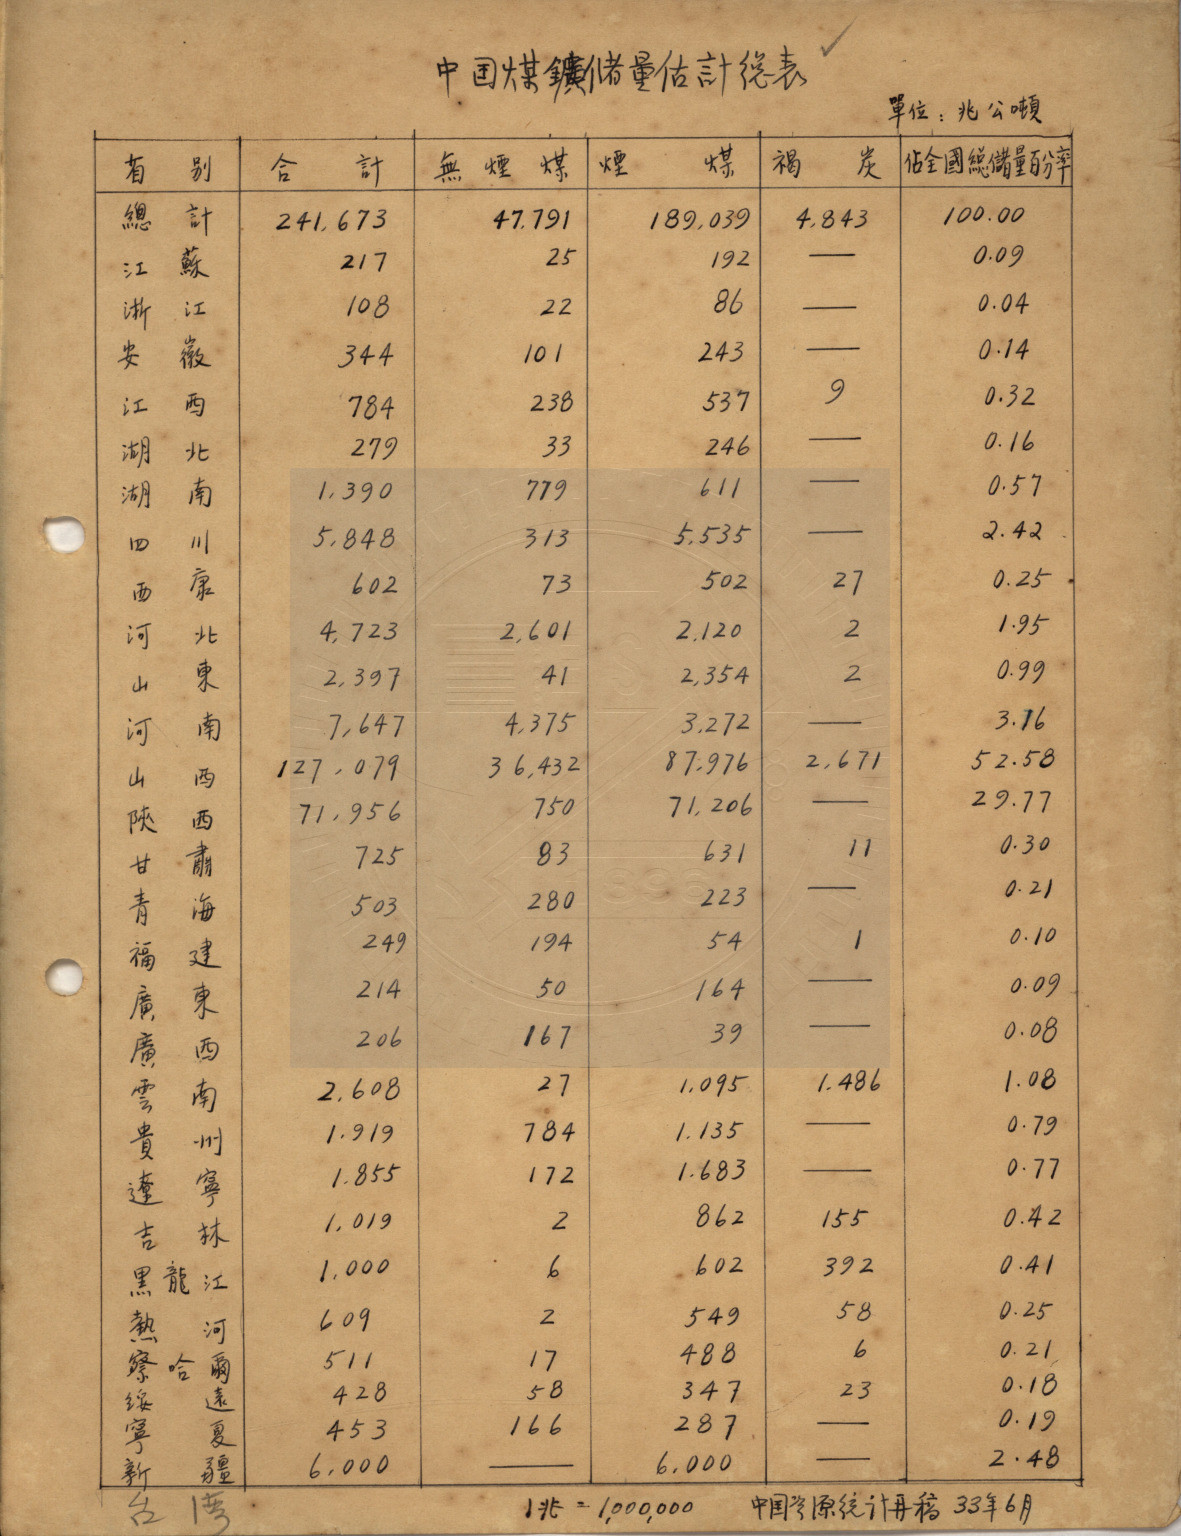 中国煤鑛儲量估計總表
單位：兆公噸
省別 合計 無煙煤 煙煤 褐炭 佔全國總儲量百分率
總計 241,673 47,791 189,039 4,843 100.00
江蘇 217 25 192 — 0.09
浙江 108 22 86 — 0.04
安徽 344 101 243 — 0.14
江西 784 238 537 9 0.32
湖北 279 33 246 — 0.16
湖南 1,390 779 611 — 0.57
四川 5,848 313 5,535 — 2.42
西康 602 73 502 27 0.25
河北 4,723 2,601 2,120 2 1.95
山東 2,397 41 2,354 2 0.99
河南 7,647 4,375 3,272 — 3.16
山西 127,079 36,432 87,976 2,671 52.58
陝西 71,956 750 71,206 — 29.77
甘肅 725 83 631 11 0.30
青海 503 280 223 — 0.21
福建 249 194 54 1 0.10
廣東 214 50 164 — 0.09
廣西 206 167 39 — 0.08
雲南 2,608 27 1,095 1,486 1.08
貴州 1,919 784 1,135 — 0.79
遼寧 1,855 172 1,683 — 0.77
吉林 1,019 2 862 155 0.42
黑龍江 1,000 6 602 392 0.41
熱河 609 2 549 58 0.25
察哈爾 511 17 488 6 0.21
綏遠 428 58 347 23 0.18
寧夏 453 166 287 — 0.19
新疆 6,000 — 6,000 — 2.48
台灣
1兆=1,000,000 中国资源統計再稿 33年6月